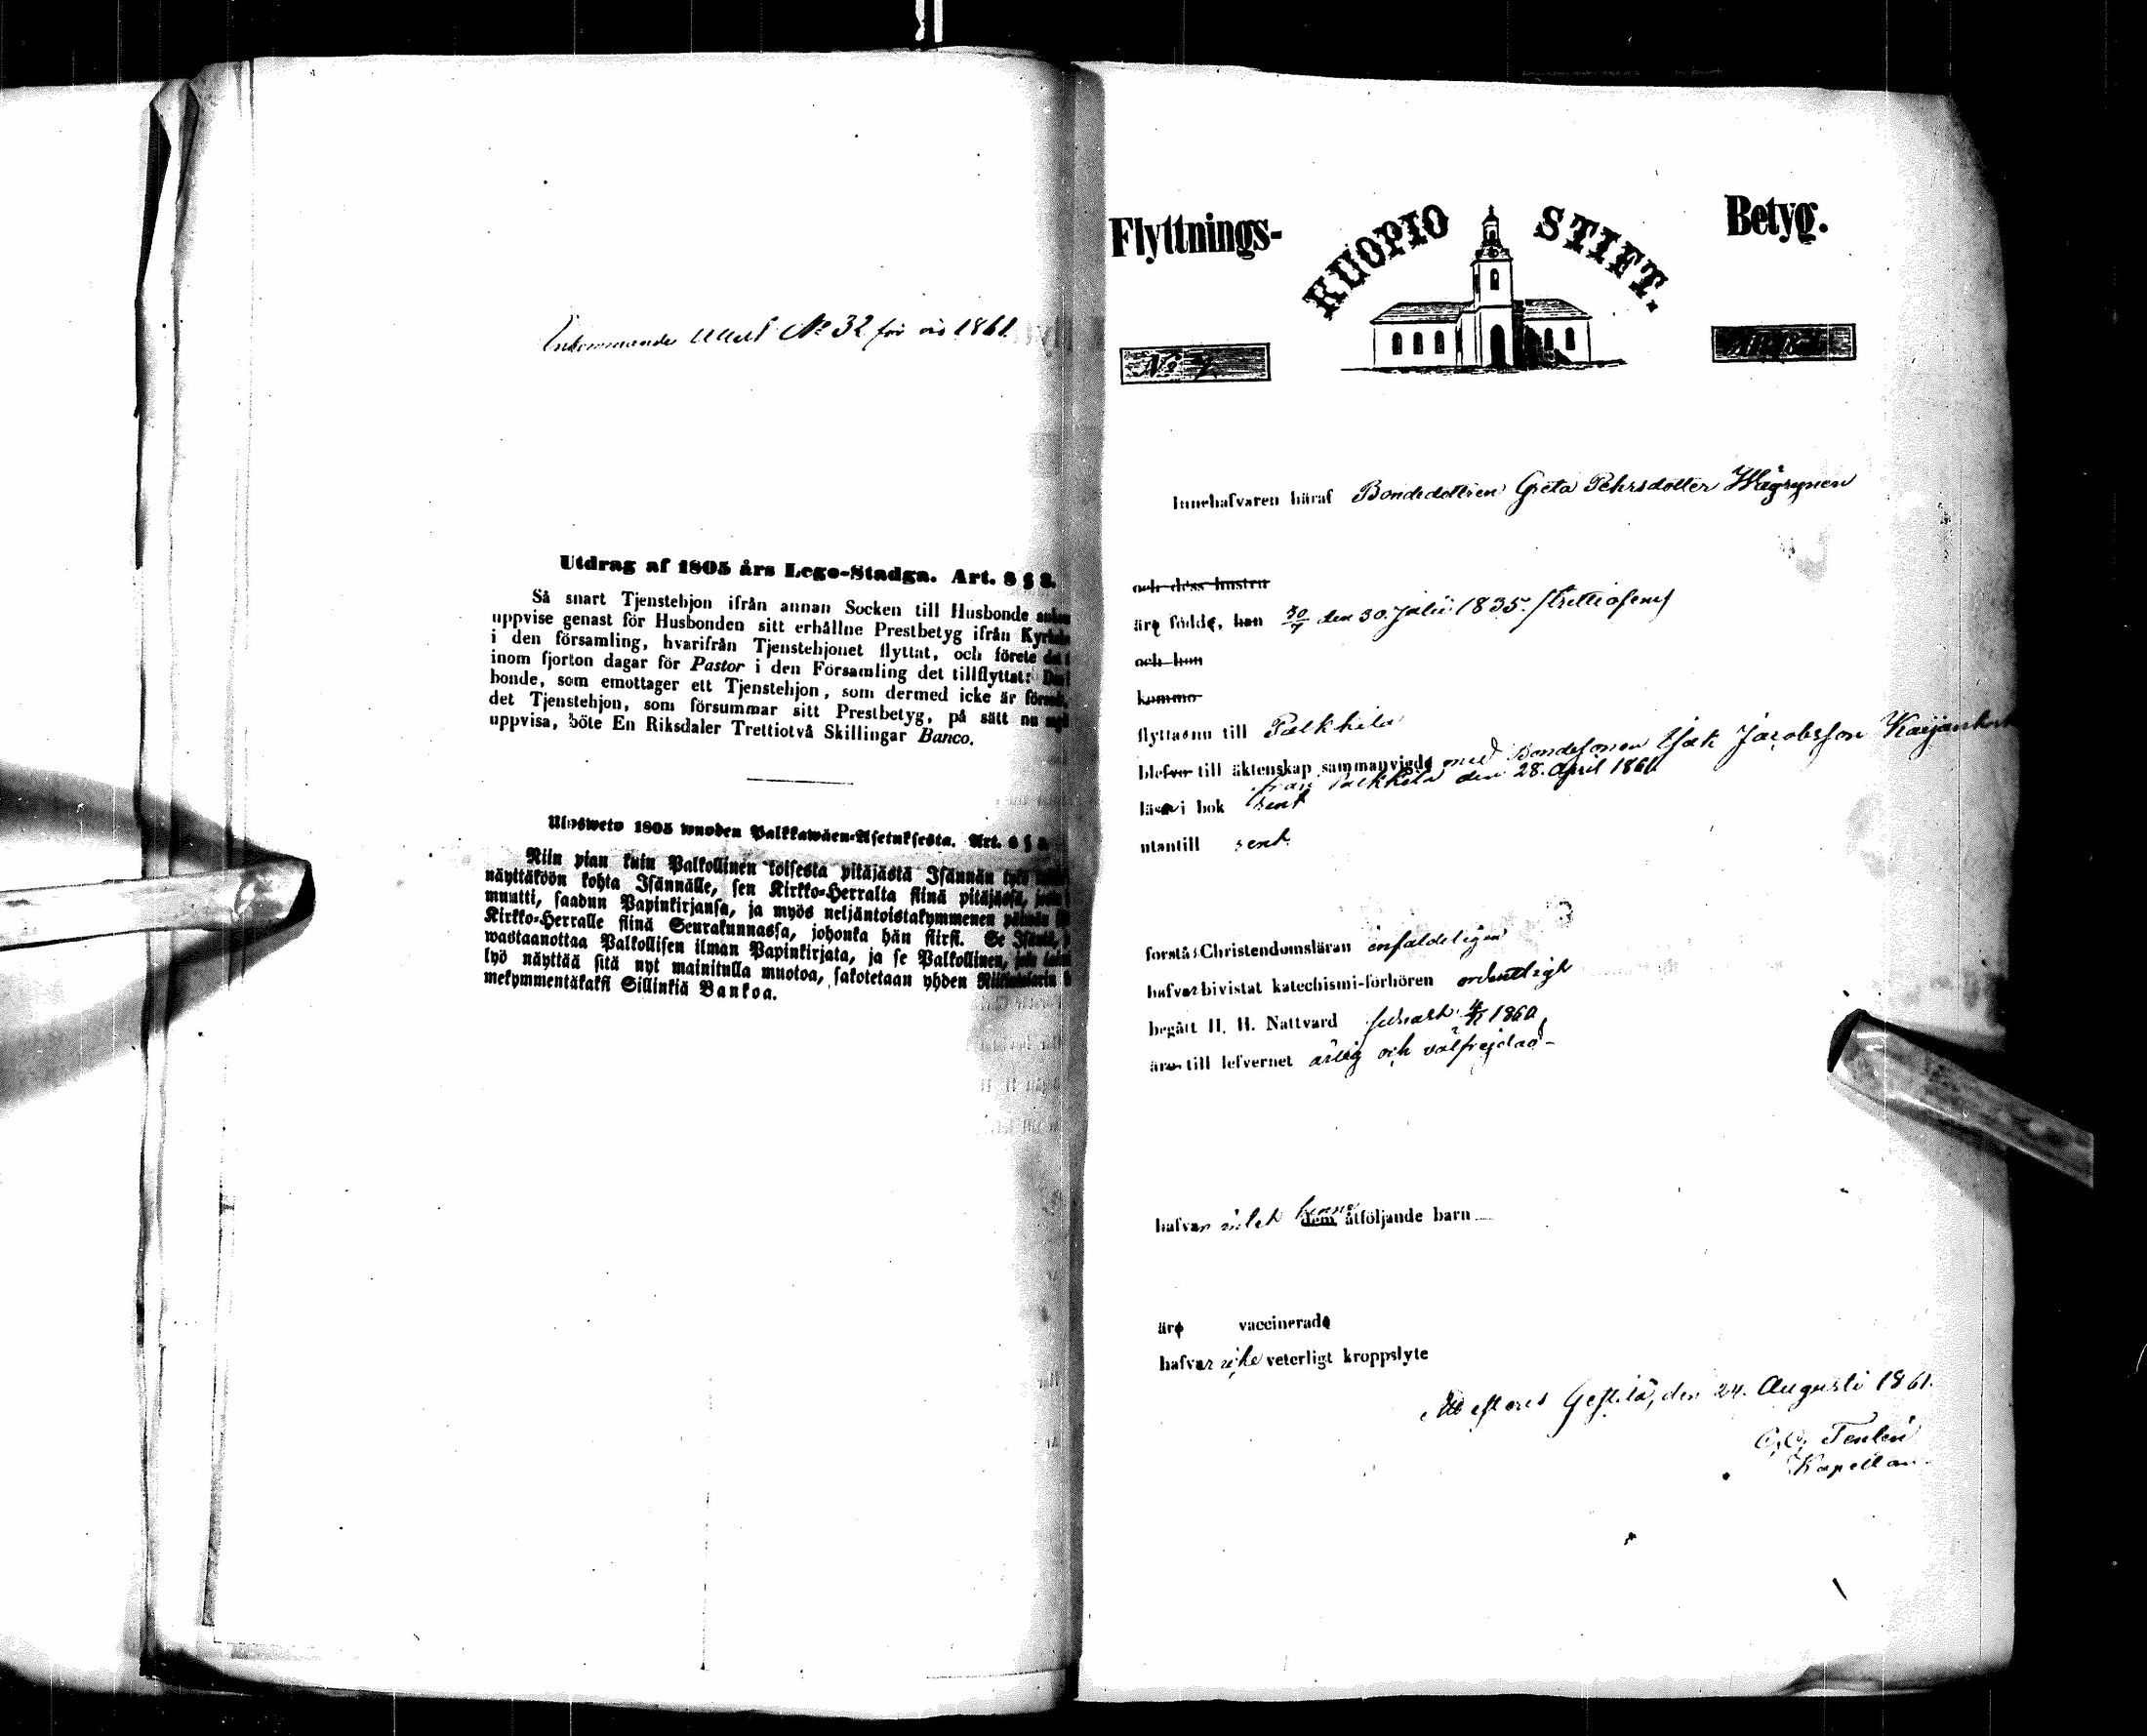 Inkommande attest No 32 för års 1861.
Utdrag af 1805 års Lego-Stadga. Art. 8 § 8.
Så snart Tjenstehjon ifrån annan Socken till Husbonde
uppvise genast för Husbonden sitt erhållne Prestbetyg ifrån
i den församling, hvarifrån Tjenstehjonet flyttat, och förete
inom fjorton dagar för Pastor i den Församling det tillflyttat:
bonde, som emottager ett Tjenstehjon, som dermed icke är
det Tjenstehjon, som försummar sitt Prestbetyg, på sätt nu
uppvisa, böte En Riksdaler Trettiotvå Skillingar Banco.
Ulosweto 1805 wuoden Palkkawäen-Asetuksesta. Art.
Niin pian kuin Palkollinen toisesta pitäjästä Isännän tykö
näyttäköön kohta Isännälle, sen Kirkko-Herralta siinä pitäjässä,
muutti, saadun Papinkirjansa, ja myös neljäntoistakymmenen
Kirkko-Herralle siinä Seurakunnassa, johonka hän siirsi. Se
wastaanottaa Palkollisen ilman Papinkirjata, ja se Palkollinen,
lyö näyttää sitä nyt mainitulla muotoa, sakotetaan yhden
mekymmentäkaksi Sillinkiä Bankoa.
Flyttnings- KUOPIO STIFT. Betyg.
No
Innehafvaren häraf Bondedottren Greta Pehrsdotter
och dess hustru
äre födde, han 30/7 den 30. Julii 1835. /trettiofem/
och hon
komma
flyttasnu till Palkkila
blefvo till äktenskap sammanvigde med Bondesonen Isak Jacobsson
från Palkkila den 28. April 1861
läsa i bok rent
utantill rent.
förstå Christendomsläran enfaldeligen
hafva bivistat katechismi-förhören ordentligt
begått H. H. Nattvard senast 4/11 1860,
äro till lefvernet ärlig och välfrejdad
hafva intet henne dem åtföljande barn
äre vaccinerade
hafva icke veterligt kroppslyte
Attesteras Gestilä, den 24. Augusti 1861.
Kapellan.